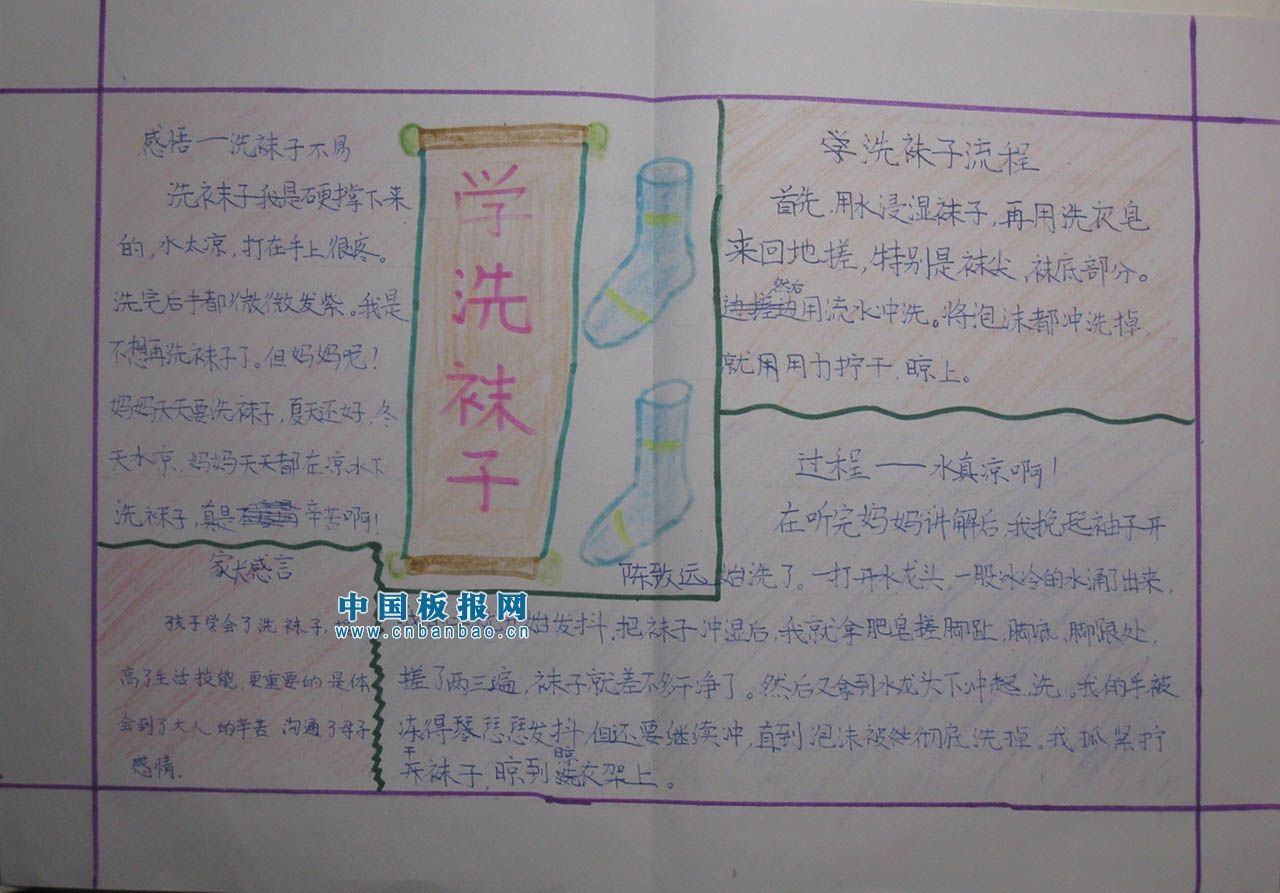 感悟一洗袜子不易
洗袜子我是硬撑下来
的,水太凉,打在手上很疼。
洗完后手都微微发紫。我是
不想再洗袜子了。但妈妈呢!
妈妈天天要洗袜子,夏天还好,冬
天水凉,妈妈天天都在凉水下
洗袜子,真是辛苦啊!
学
洗
袜
子
陈致远
学洗袜子流程
首先,用水浸湿袜子,再用洗衣皂
来回地搓,特别是袜尖,袜底部分。
然后
边搓边用流水冲洗。将泡沫都冲洗掉,
就用用力拧干,晾上。
过程——水真凉啊!
在听完妈妈讲解后,我挽起袖子开
始洗了。一打开水龙头,一股冰冷的水涌了出来,
始发抖,把袜子冲湿后,我就拿肥皂搓脚趾,脚底,脚跟处,
搓了两三遍,袜子就差不多干净了。然后又拿到水龙头下冲起,洗。我的手被
冻得琴瑟瑟发抖,但还要继续冲,直到泡沫被彻底洗掉。我抓紧拧
干
袜子,晾到
晾
衣架上。
家长感言
孩子学会了洗袜子,
高了生活技能,更重要的是体
会到了大人的辛苦 沟通了母子
感情.
中国板报网
www.cnbanbao.cn